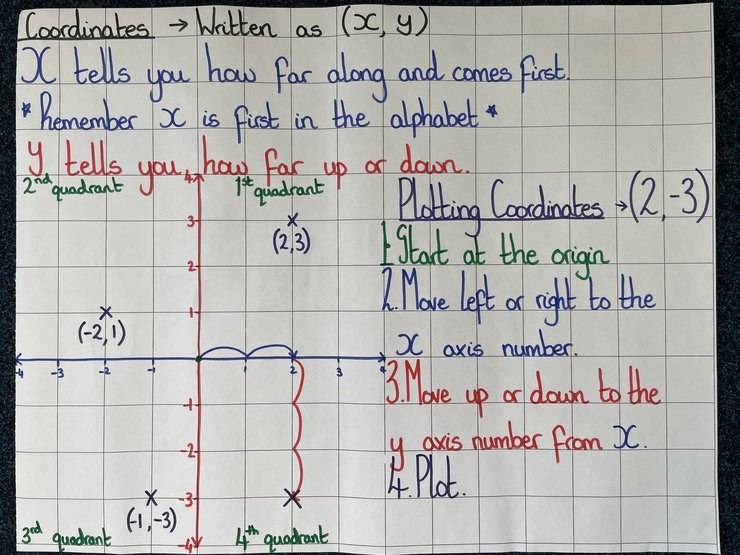 Coordinates → Written as (x, y)
x tells you how far along and comes first.
*Remember x is first in the alphabet*
y tells you how far up or down.
2nd quadrant
1st quadrant
Plotting Coordinates → (2,-3)
1. Start at the origin
2. Move left or right to the
x axis number.
3. Move up or down to the
y axis number from x.
4. Plot.
4
3
2
1
-1
-2
-3
-4
-4 -3 -2 -1 1 2 3 4
(2,3)
(-2,1)
(-1,-3)
3rd quadrant
4th quadrant